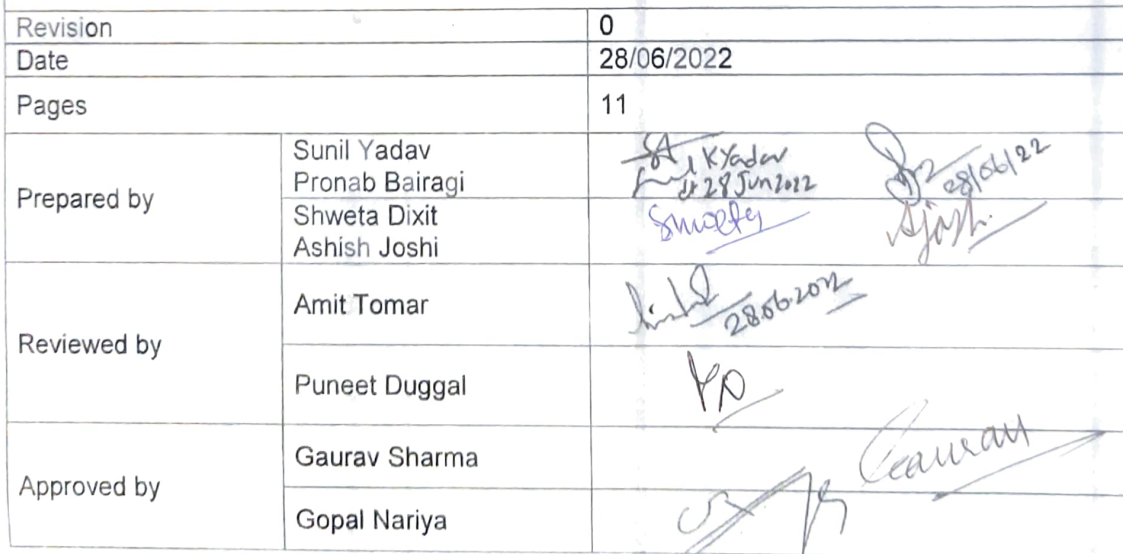 Revision 0
Date 28/06/2022
Pages 11
Prepared by
Sunil Yadav
Pronab Bairagi
K Yadav
dt 28 Jun 2022
28/06/22
Shweta Dixit
Ashish Joshi
AJosh
Reviewed by
Amit Tomar
28.06.2022
Puneet Duggal
PD
Approved by
Gaurav Sharma
Gaurav
Gopal Nariya